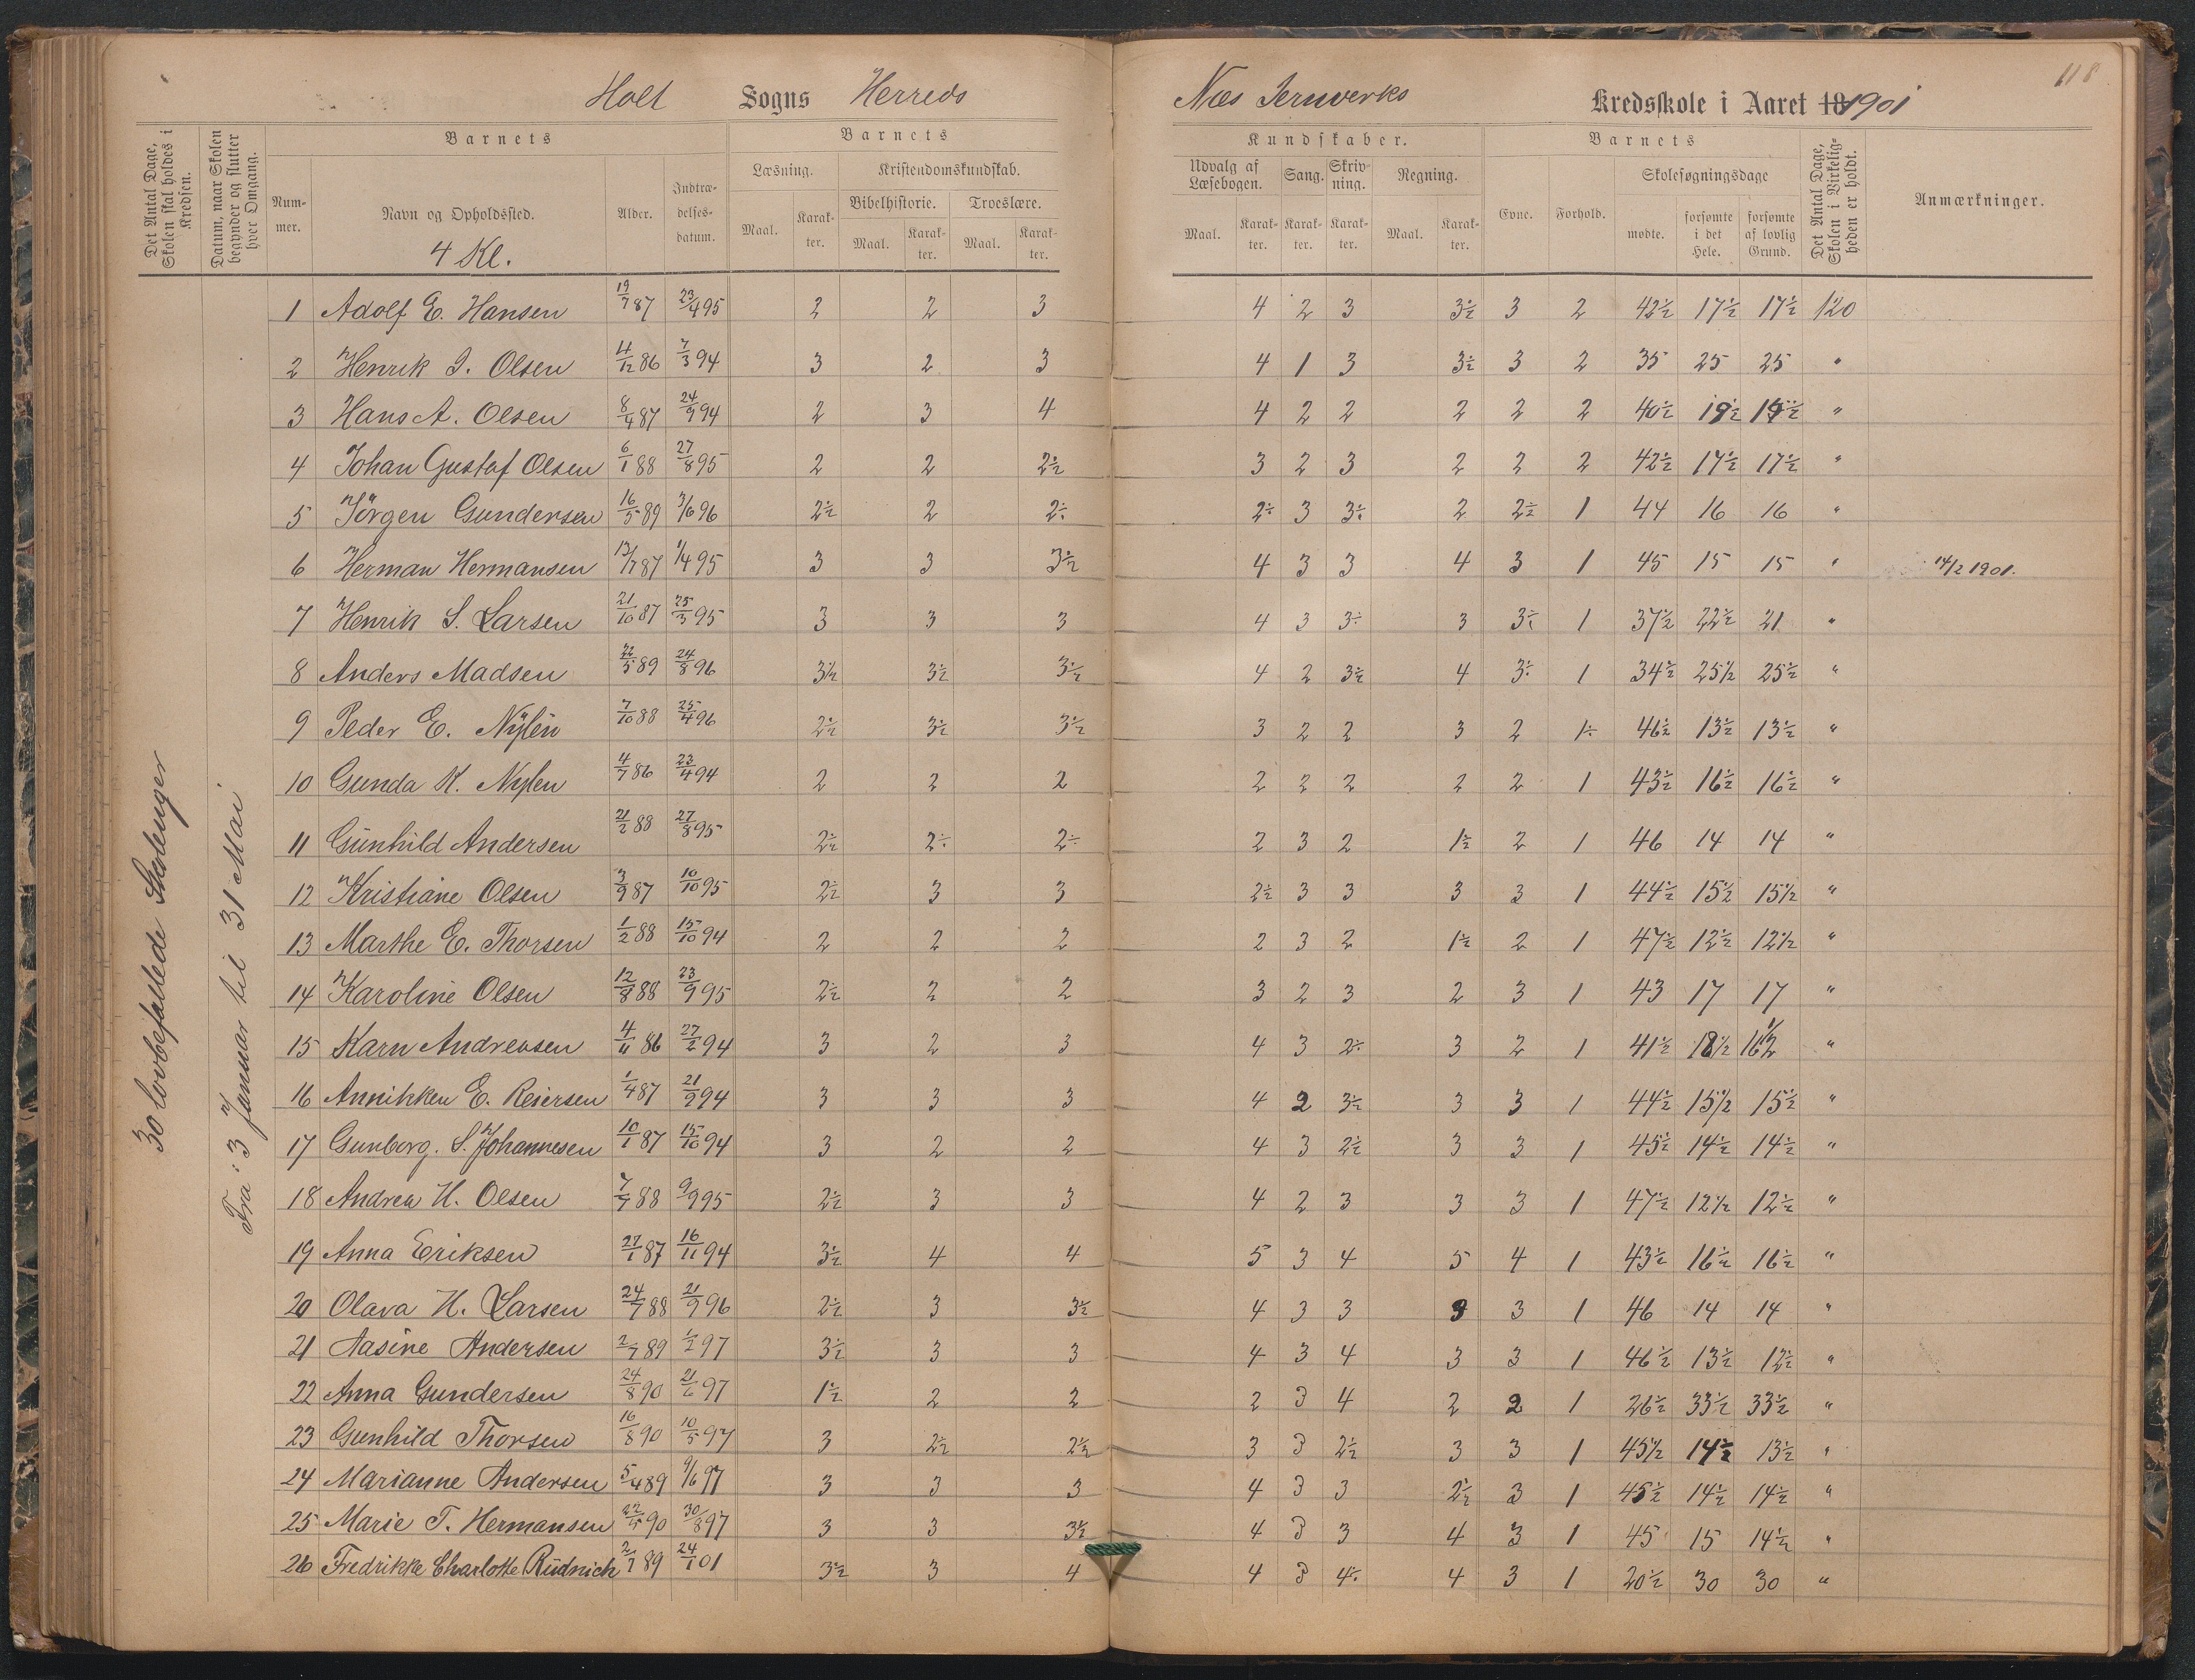 118
Holt Sogns Herreds Næs Jernverks Kredsskole i Aaret 18 1901
Det Antal Dage, Skolen skal holdes i Kredsen.
Datum, naar Skolen begynder og slutter hver Omgang.
Barnets
Nummer.
Navn og Opholdssted.
4 Kl.
Alder.
Indtrædelsesdatum.
Barnets
Læsning.
Maal. Karakter.
Kristendomskundskab.
Bibelhistorie.
Maal. Karakter.
Troeslære.
Maal. Karakter.
Kundskaber.
Udvalg af Læsebogen.
Maal. Karakter.
Sang.
Karakter.
Skrivning.
Karakter.
Regning.
Maal. Karakter.
Barnets
Evne. Forhold.
Skolesøgningsdage
mødte. forsømte i det Hele. forsømte af lovlig Grund.
Det Antal Dage, Skolen i Virkeligheden er holdt.
Anmærkninger.
30 lovbefallede
Fra 3 Januar til 31 Mai
1 Adolf E. Hansen 19/7 87 23/4 95 2 2 3 4 2 3 3½ 3 2 42½ 17½ 17½ 120
2 Henrik J. Olsen 4/12 86 7/3 94 3 2 3 4 1 3 3½ 3 2 35 25 25 "
3 Hans A. Olsen 8/4 87 24/9 94 2 3 4 4 2 2 2 2 2 40½ 19½ 19½ "
4 Johan Gustaf Olsen 6/1 88 27/8 95 2 2 2½ 3 2 3 2 2 2 42½ 17½ 17½ "
5 Jörgen Gundersen 16/5 89 3/6 96 2½ 2 2÷ 2÷ 3 3÷ 2 2½ 1 44 16 16 "
6 Herman Hermansen 13/7 87 1/4 95 3 3 3½ 4 3 3 4 3 1 45 15 15 " 14/2 1901.
7 Henrik S. Larsen 21/10 87 25/3 95 3 3 3 4 3 3÷ 3 3÷ 1 37½ 22½ 21 "
8 Anders Madsen 22/5 89 24/8 96 3½ 3½ 3½ 4 2 3½ 4 3÷ 1 34½ 25½ 25½ "
9 Peder E. Nylén 7/10 88 25/4 96 2½ 3½ 3½ 3 2 2 3 2 1÷ 46½ 13½ 13½ "
10 Gunda K. Nylen 4/7 86 23/4 94 2 2 2 2 2 2 2 2 1 43½ 16½ 16½ "
11 Gunhild Andersen 21/2 88 27/8 95 2½ 2÷ 2÷ 2 3 2 1½ 2 1 46 14 14 "
12 Kristiane Olsen 3/9 87 10/10 95 2½ 3 3 2½ 3 3 3 3 1 44½ 15½ 15½ "
13 Marthe E. Thorsen 1/2 88 15/10 94 2 2 2 2 3 2 1½ 2 1 47½ 12½ 12½ "
14 Karoline Olsen 12/8 88 23/9 95 2½ 2 2 3 2 3 2 3 1 43 17 17 "
15 Karn Andreasen 4/11 86 27/2 94 3 2 3 4 3 2÷ 3 2 1 41½ 18½ 16½ "
16 Annikken E. Reiersen 1/4 87 21/9 94 3 3 3 4 2 3½ 3 3 1 44½ 15½ 15½ "
17 Gunborg. S. Johannesen 10/1 87 15/10 94 3 2 2 4 3 2½ 3 3 1 45½ 14½ 14½ "
18 Andrea H. Olsen 7/7 88 9/9 95 2½ 3 3 4 2 3 3 3 1 47½ 12½ 12½ "
19 Anna Eriksen 27/1 87 16/11 94 3½ 4 4 5 3 4 5 4 1 43½ 16½ 16½ "
20 Olava H. Larsen 24/7 88 21/9 96 2½ 3 3½ 4 3 3 3 3 1 46 14 14 "
21 Aasine Andersen 2/7 89 1/2 97 3½ 3 3 4 3 4 3 3 1 46½ 13½ 12½ "
22 Anna Gundersen 24/8 90 21/6 97 1½ 2 2 2 3 4 2 2 1 26½ 33½ 33½ "
23 Gunhild Thorsen 16/8 90 10/5 97 3 2½ 2½ 3 3 2½ 3 3 1 45½ 14½ 13½ "
24 Marianne Andersen 5/4 89 9/6 97 3 3 3 4 3 3 2½ 3 1 45½ 14½ 14½ "
25 Marie T. Hermansen 22/5 90 30/8 97 3 3 3½ 4 3 3 4 3 1 45 15 14½ "
26 Fredrikke Charlotte Rüdnick 2/7 89 24/1 01 3½ 3 4 4 3 4÷ 4 3 1 20½ 30 30 "